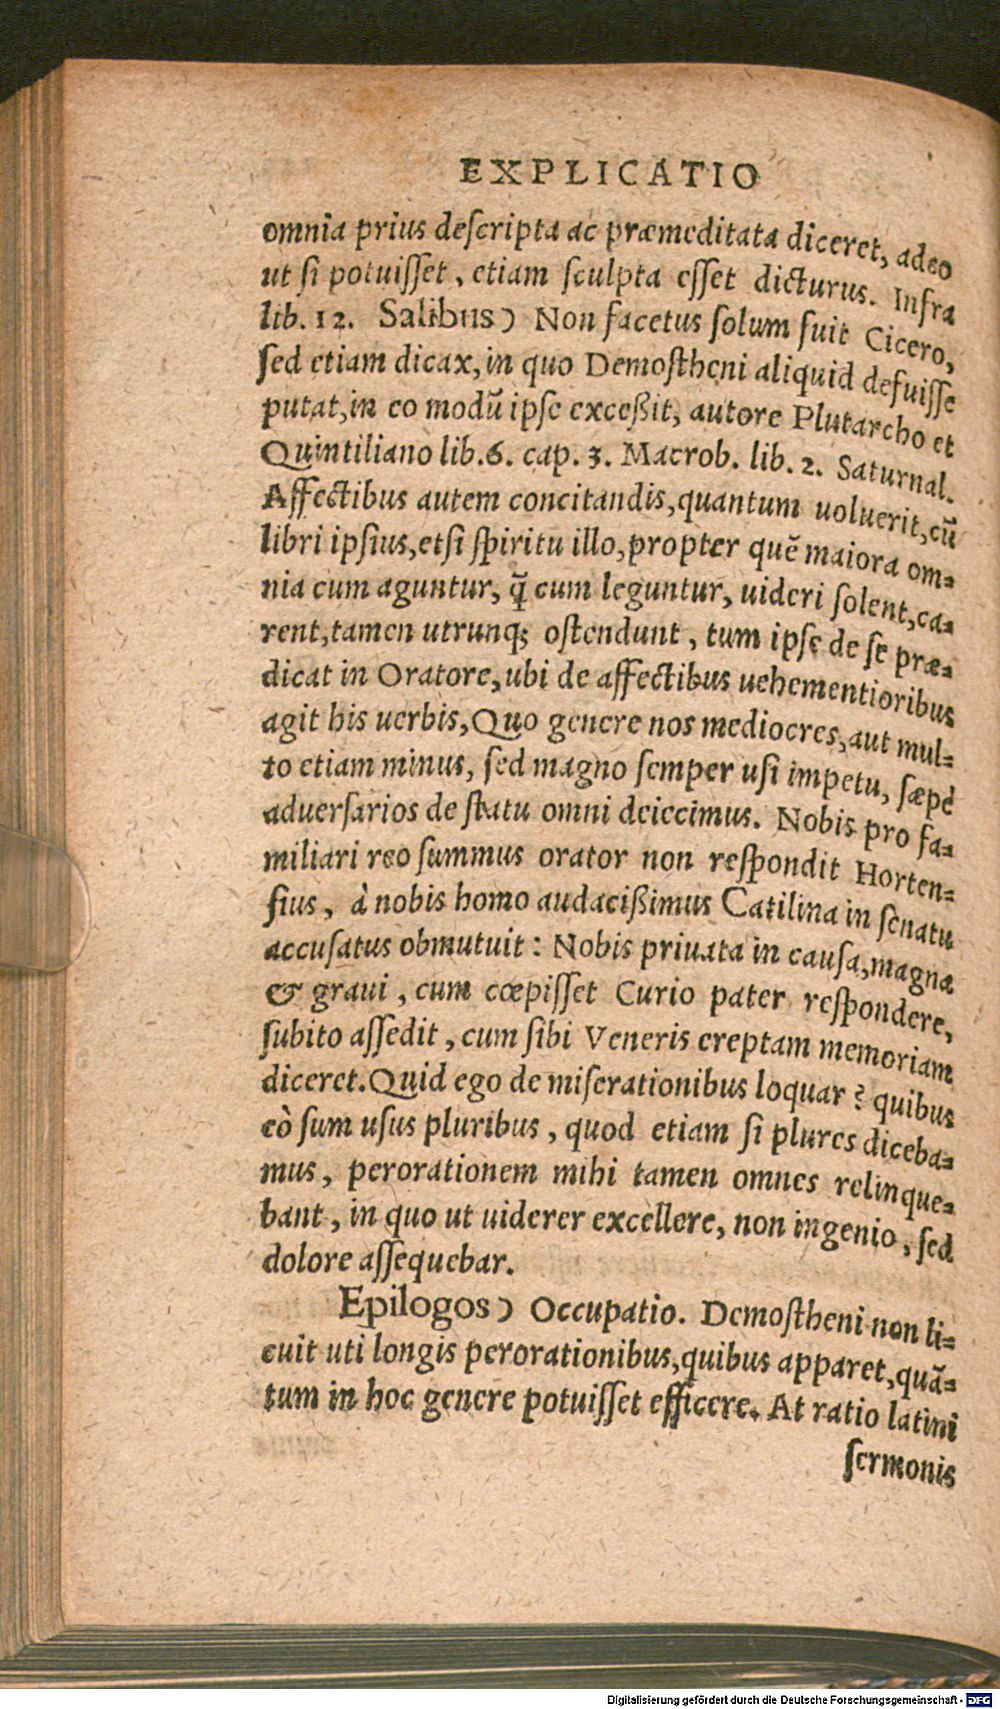 EXPLICATIO
omnia prius deſcripta ac præmeditata diceret, adeo
ut ſi potuiſſet, etiam ſculpta eſſet dicturus. Infra
lib. 12. Salibus) Non facetus ſolum fuit Cicero,
ſed etiam dicax, in quo Demoſtheni aliquid defuiſſe
putat, in eo modū ipſe exceßit, autore Plutarcho et
Quintiliano lib. 6. cap. 3. Macrob. lib. 2. Saturnal.
Affectibus autem concitandis, quantum uoluerit, cū
libri ipſius, etſi ſpiritu illo, propter quē maiora om-
nia cum aguntur, q̄ cum leguntur, uideri ſolent, ca-
rent, tamen utrunq; oſtendunt, tum ipſe de ſe præ-
dicat in Oratore, ubi de affectibus uehementioribus
agit his uerbis, Quo genere nos mediocres, aut mul-
to etiam minus, ſed magno ſemper uſi impetu, ſæpè
aduerſarios de ſtatu omni deiecimus. Nobis pro fa-
miliari reo ſummus orator non reſpondit Horten-
ſius, à nobis homo audacißimus Catilina in ſenatu
accuſatus obmutuit: Nobis priuata in cauſa, magna
& graui, cum cœpiſſet Curio pater reſpondere,
ſubito aſſedit, cum ſibi Veneris ereptam memoriam
diceret. Quid ego de miſerationibus loquar? quibus
eò ſum uſus pluribus, quod etiam ſi plures diceba-
mus, perorationem mihi tamen omnes relinque-
bant, in quo ut uiderer excellere, non ingenio, ſed
dolore aſſequebar.
Epilogos) Occupatio. Demoſtheni non li-
cuit uti longis perorationibus, quibus apparet, quā-
tum in hoc genere potuiſſet efficere. At ratio latini
ſermonis
Digitalisierung gefördert durch die Deutsche Forschungsgemeinschaft - DFG